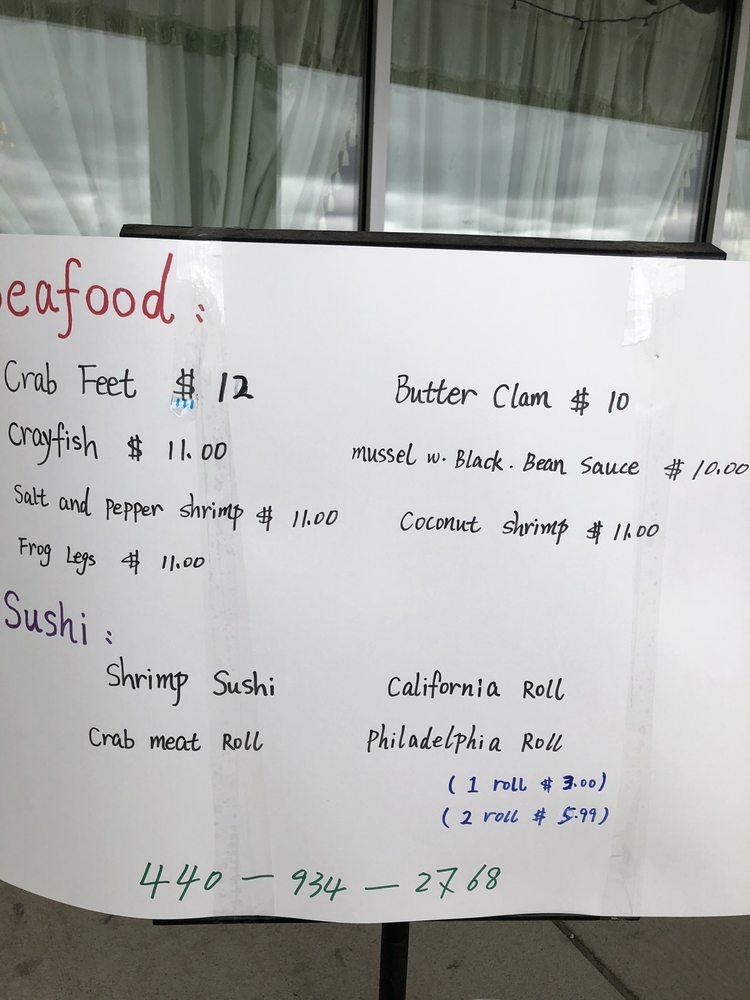 eafood :
Crab Feet $ 12
Butter Clam $ 10
Crayfish $ 11.00
mussel w. Black. Bean Sauce $ 10.00
Salt and pepper shrimp $ 11.00
Coconut shrimp $ 11.00
Frog Legs $ 11.00
Sushi :
Shrimp Sushi
California Roll
Crab meat Roll
Philadelphia Roll
( 1 roll $ 3.00)
( 2 roll $ 5.99)
440 - 934 - 2768